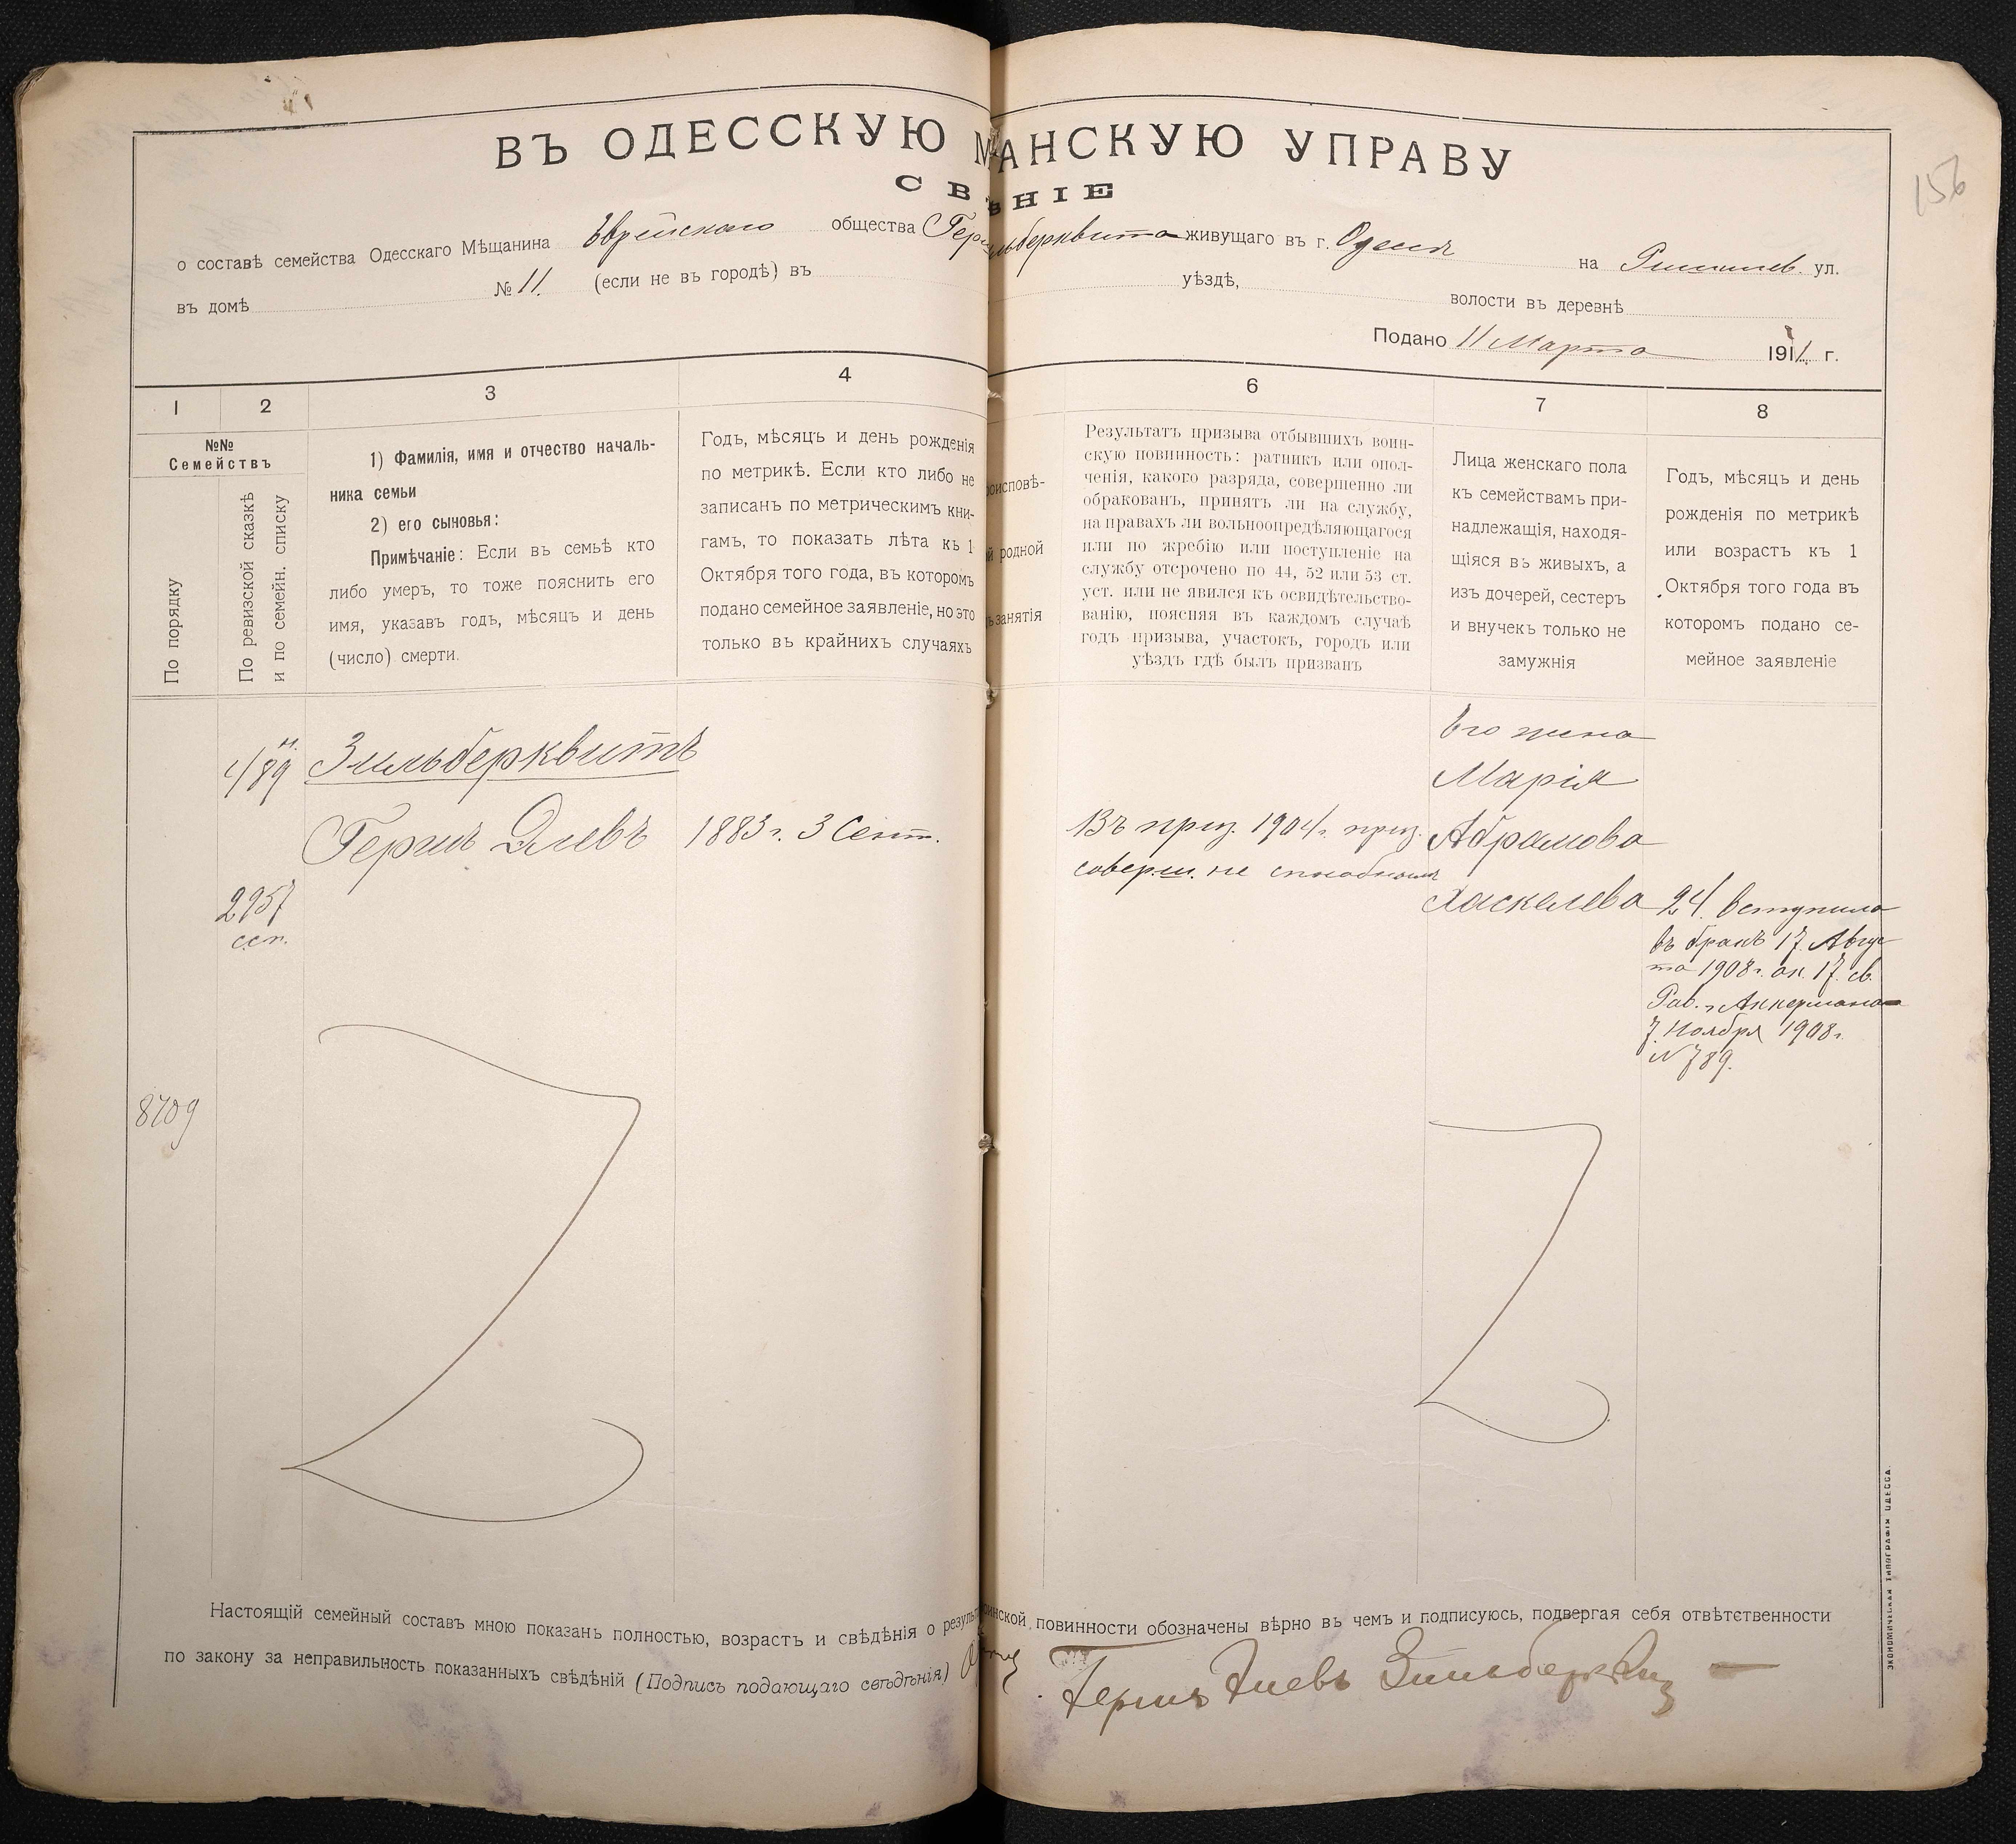 156
ВЪ ОДЕССКУЮ М АНСКУЮ УПРАВУ
СВ ѢНІЕ
о составѣ семейства Одесскаго Мѣщанина Еврейскаго общества Гер льберквита живущаго въ г. Одессѣ на Ришельев. ул.
въ домѣ № 11. (если не въ городѣ) въ уѣздѣ, волости въ деревнѣ
Подано 11 Марта 1911 г.
1 2 3 4 6 7 8
№№
Семействъ
По порядку
По ревизской сказкѣ
и по семейн. списку
1) Фамилія, имя и отчество началь-
ника семьи
2) его сыновья:
Примѣчаніе: Если въ семьѣ кто
либо умеръ, то тоже пояснить его
имя, указавъ годъ, мѣсяцъ и день
(число) смерти.
Годъ, мѣсяцъ и день рожденія
по метрикѣ. Если кто либо не
записанъ по метрическимъ кни-
гамъ, то показать лѣта къ 1
Октября того года, въ которомъ
подано семейное заявленіе, но это
только въ крайнихъ случаяхъ
роисповѣ-
й родной
ъ занятія
Результатъ призыва отбывшихъ воин-
скую повинность: ратникъ или опол-
ченія, какого разряда, совершенно ли
обракованъ, принятъ ли на службу,
на правахъ ли вольноопредѣляющагося
или по жребію или поступленіе на
службу отсрочено по 44, 52 или 53 ст.
уст. или не явился къ освидѣтельство-
ванію, поясняя въ каждомъ случаѣ
годъ призыва, участокъ, городъ или
уѣздъ гдѣ былъ призванъ
Лица женскаго пола
къ семействамъ при-
надлежащія, находя-
щіяся въ живыхъ, а
изъ дочерей, сестеръ
и внучекъ только не
замужнія
Годъ, мѣсяцъ и день
рожденія по метрикѣ
или возрастъ къ 1
Октября того года въ
которомъ подано се-
мейное заявленіе
Зильберквитъ
Гершъ Элевъ
2957
1883 г. 3 Сент.
Въ приз. 1904 г. приз.
соверш. не способнымъ
Его жена
Марія
Абрамова
Хаскелева
24. Вступила
въ бракъ 17. Авгус
та 1908 г.
Рав. г. Аккермана
7. Ноября 1908 г.
N 789.
8709
Настоящій семейный составъ мною показанъ полностью, возрастъ и свѣдѣнія о результ оинской повинности обозначены вѣрно въ чемъ и подписуюсь, подвергая себя отвѣтственности
по закону за неправильность показанныхъ свѣдѣній (Подпись подающаго свѣдѣнія) Гершъ Элевъ
ЭКОНОМИЧЕСКАЯ ТИПОГРАФІЯ ОДЕССА.